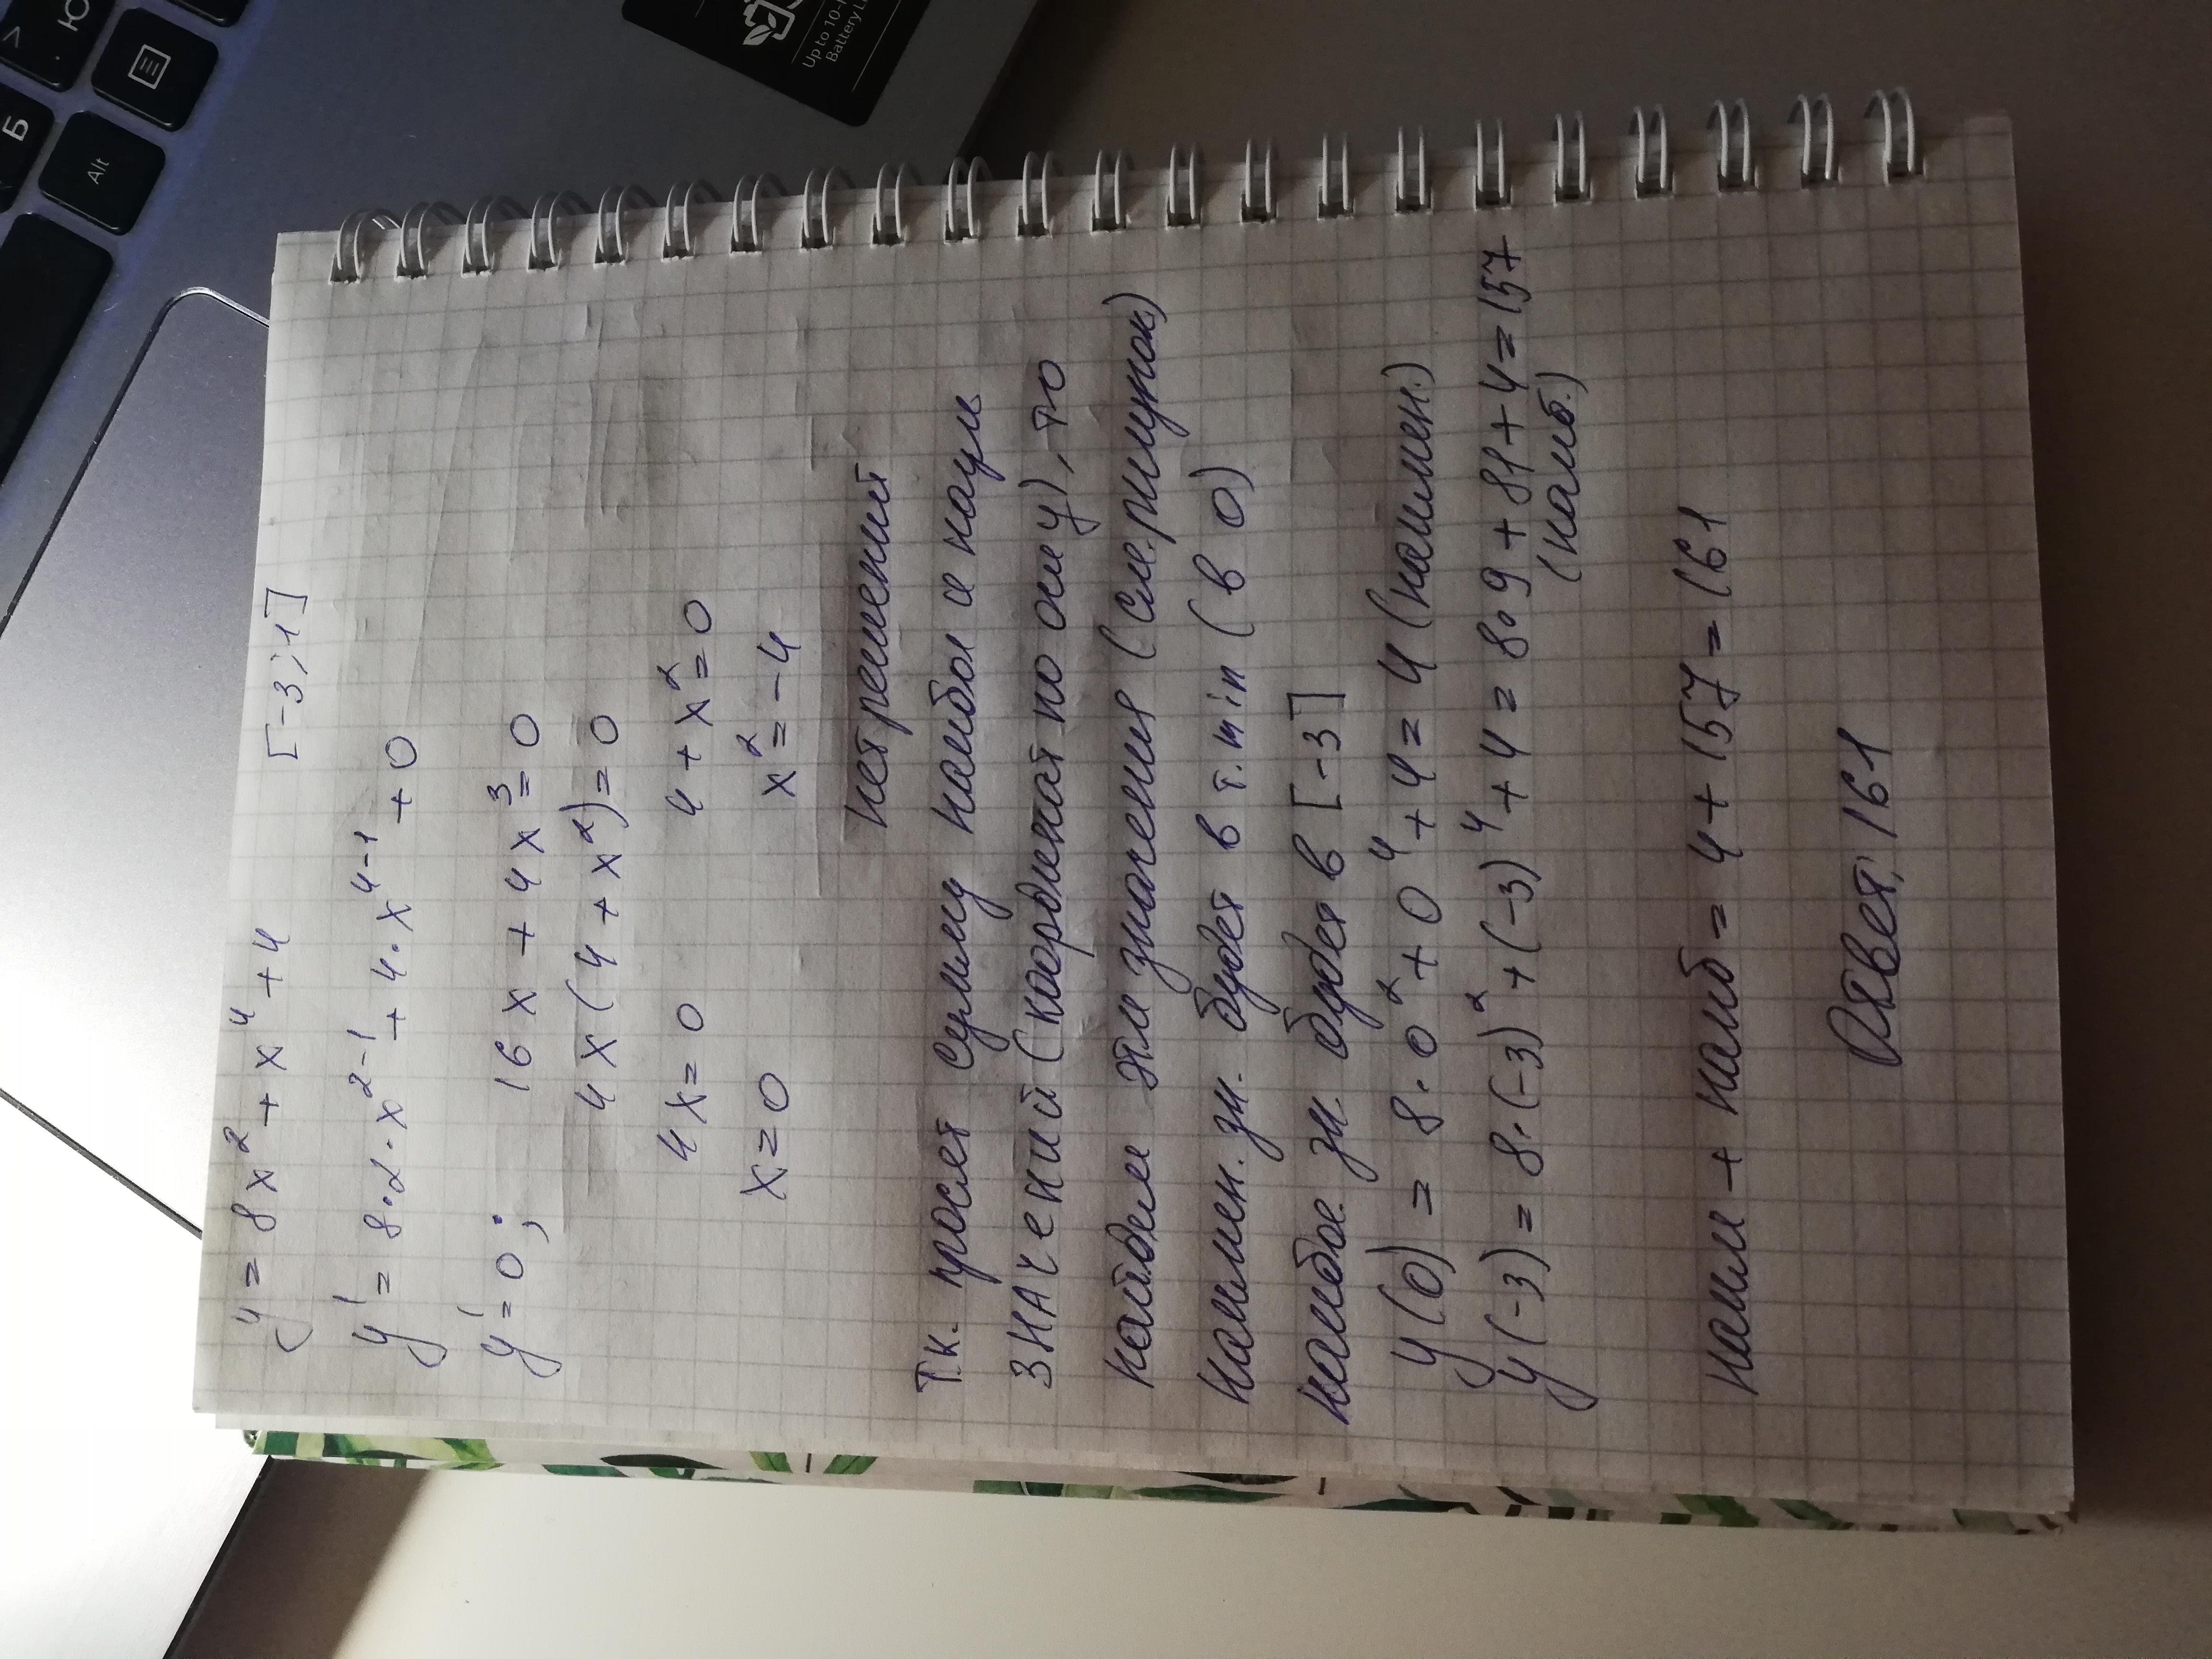 y = 8x² + x⁴ + 4 [-3;1]
y' = 8·2·x²⁻¹ + 4·x⁴⁻¹ + 0
y' = 0; 16x + 4x³ = 0
4x(4 + x²) = 0
4x = 0 4 + x² = 0
x = 0 x² = -4
нет решений
Т.к. просят сумму наибол и наим
значений (координат по оси y), то
найдем эти значения (см. рисунок)
наимен. зн. будет в т. min (в 0)
наибол. зн. будет в [-3]
y(0) = 8·0² + 0⁴ + 4 = 4 (наимен.)
y(-3) = 8·(-3)² + (-3)⁴ + 4 = 8·9 + 81 + 4 = 157
(наиб.)
наим + наиб = 4 + 157 = 161
Ответ: 161
Up to 10-
Battery Li
Alt
Б
Ю
>
.